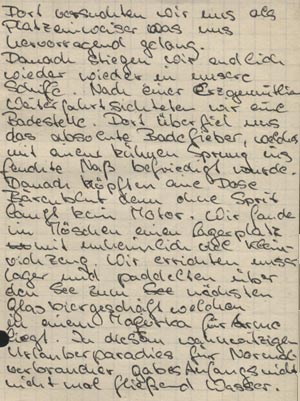 Dort versuchten wir uns als
Platzeinweiser was uns
hervorragend gelang.
Danach stiegen wir endlich
wieder wieder in unsere
Schiffe. Nach einer
Weiterfahrt sichteten wir eine
Badestelle. Dort überfiel uns
das absolute Badefieber, welches
mit einem kühnen Sprung ins
feuchte Naß befriedigt wurde.
Danach köpften eine Dose
Bärenblut denn ohne Sprit
läuft kein Motor. Wir fanden
im Höschen einen Lagerplatz
mit unheimlich viel Klein-
viehzeug. Wir errichten unser
Lager und paddelten über
den See zum See nächsten
Glasbiergeschäft welches
in einem für Arme
liegt. In diesem wahnwitzigen
Urlauberparadies für Normal-
verbraucher gabes Anfangs nicht
nicht mal fließend Wasser.